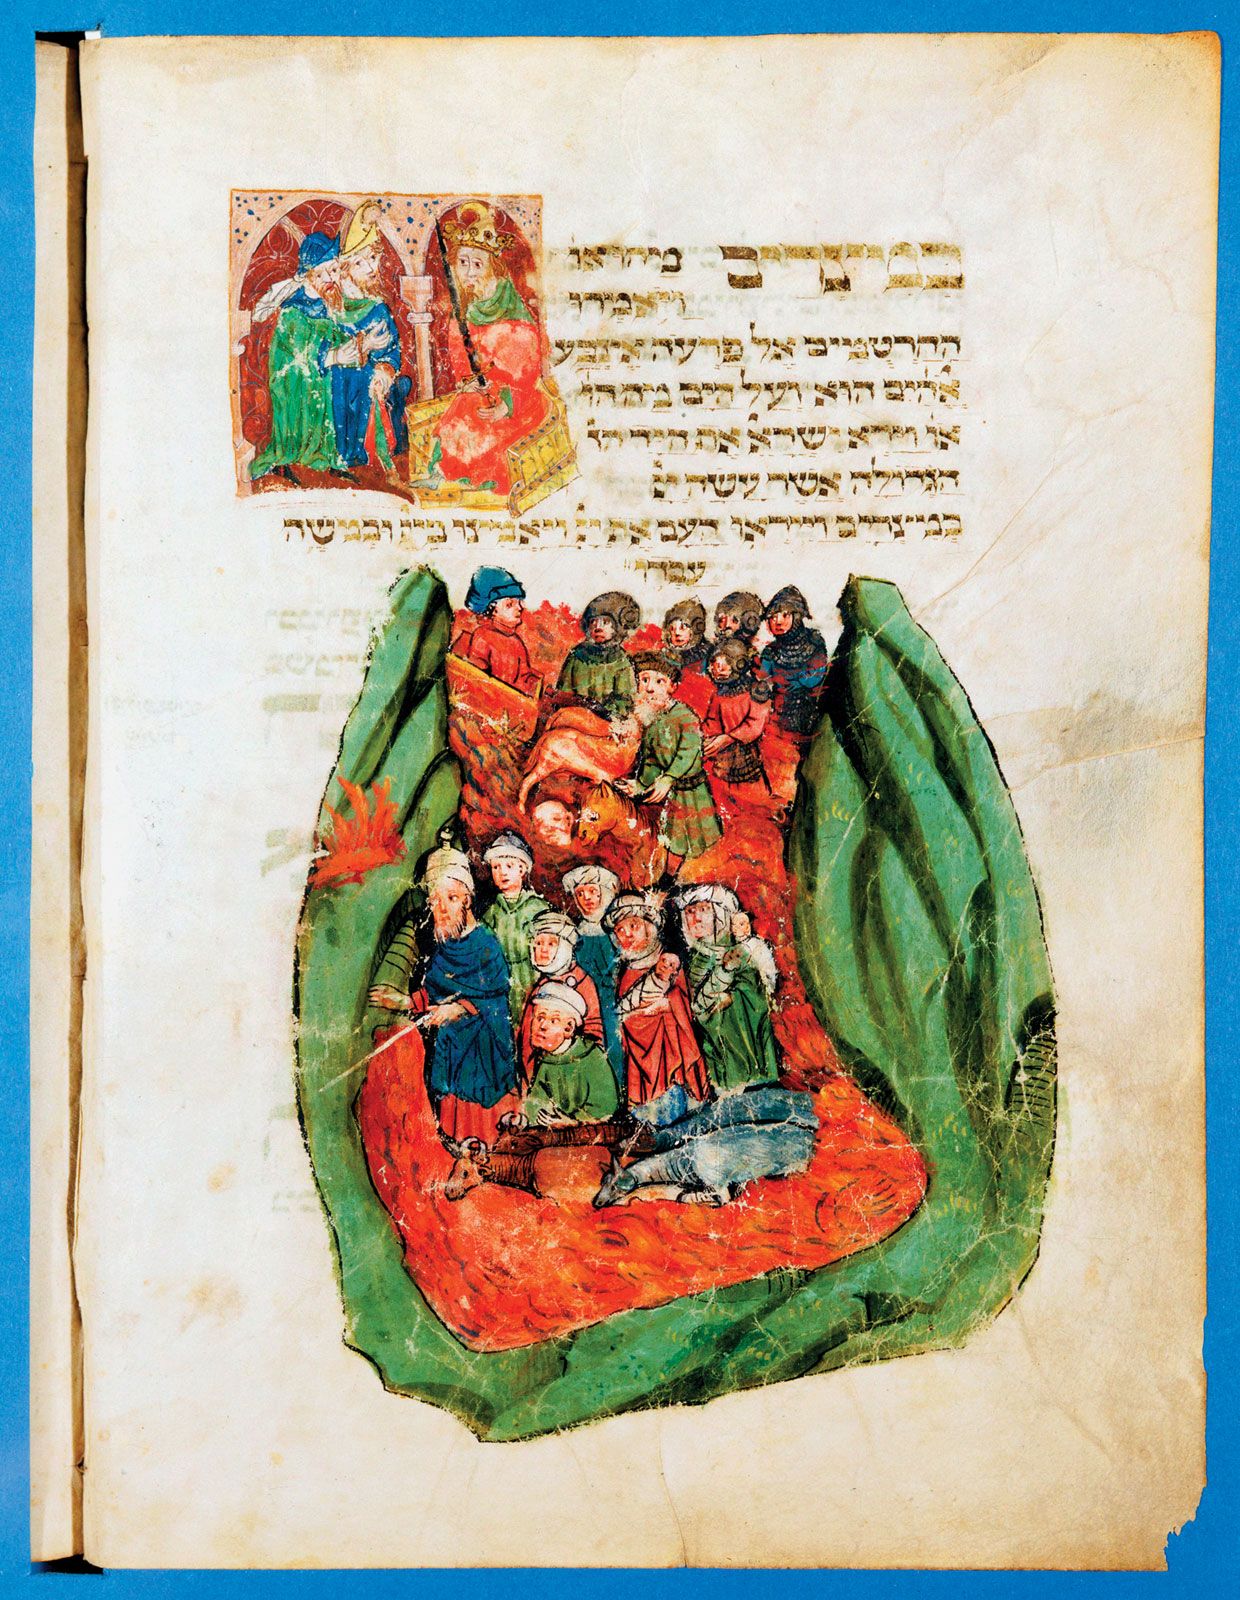 במצרים מיהו או'
ויאמרו
החרטמים אל פרעה אצבע
אלהים הוא ועל הים מיהו
או' וירא ישראל את היד
הגדולה אשר עשה יי
במצרים וייראו העם את יי ויאמינו ביי ובמשה
עבדו